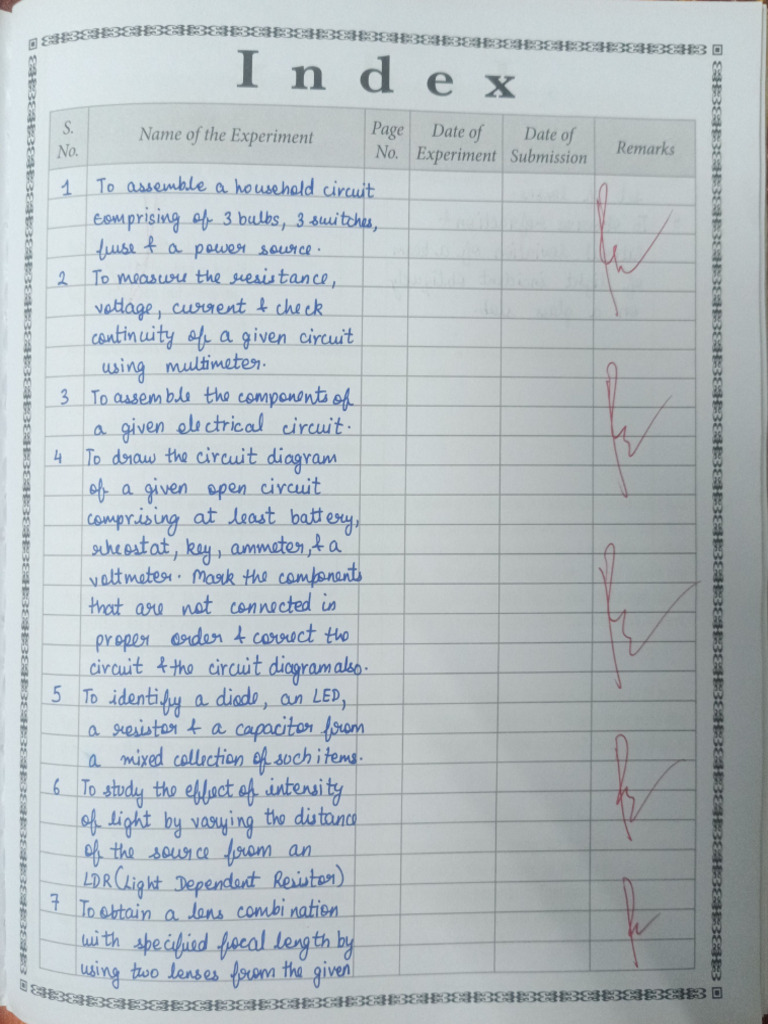 Index
S. No. Name of the Experiment Page No. Date of Experiment Date of Submission Remarks
1 To assemble a household circuit
comprising of 3 bulbs, 3 switches,
fuse & a power source.
2 To measure the resistance,
voltage, current & check
continuity of a given circuit
using multimeter.
3 To assemble the components of
a given electrical circuit.
4 To draw the circuit diagram
of a given open circuit
comprising at least battery,
rheostat, key, ammeter, & a
voltmeter. Mark the components
that are not connected in
proper order & correct the
circuit & the circuit diagram also.
5 To identify a diode, an LED,
a resistor & a capacitor from
a mixed collection of such items.
6 To study the effect of intensity
of light by varying the distance
of the source from an
LDR (Light Dependent Resistor)
7 To obtain a lens combination
with specified focal length by
using two lenses from the given